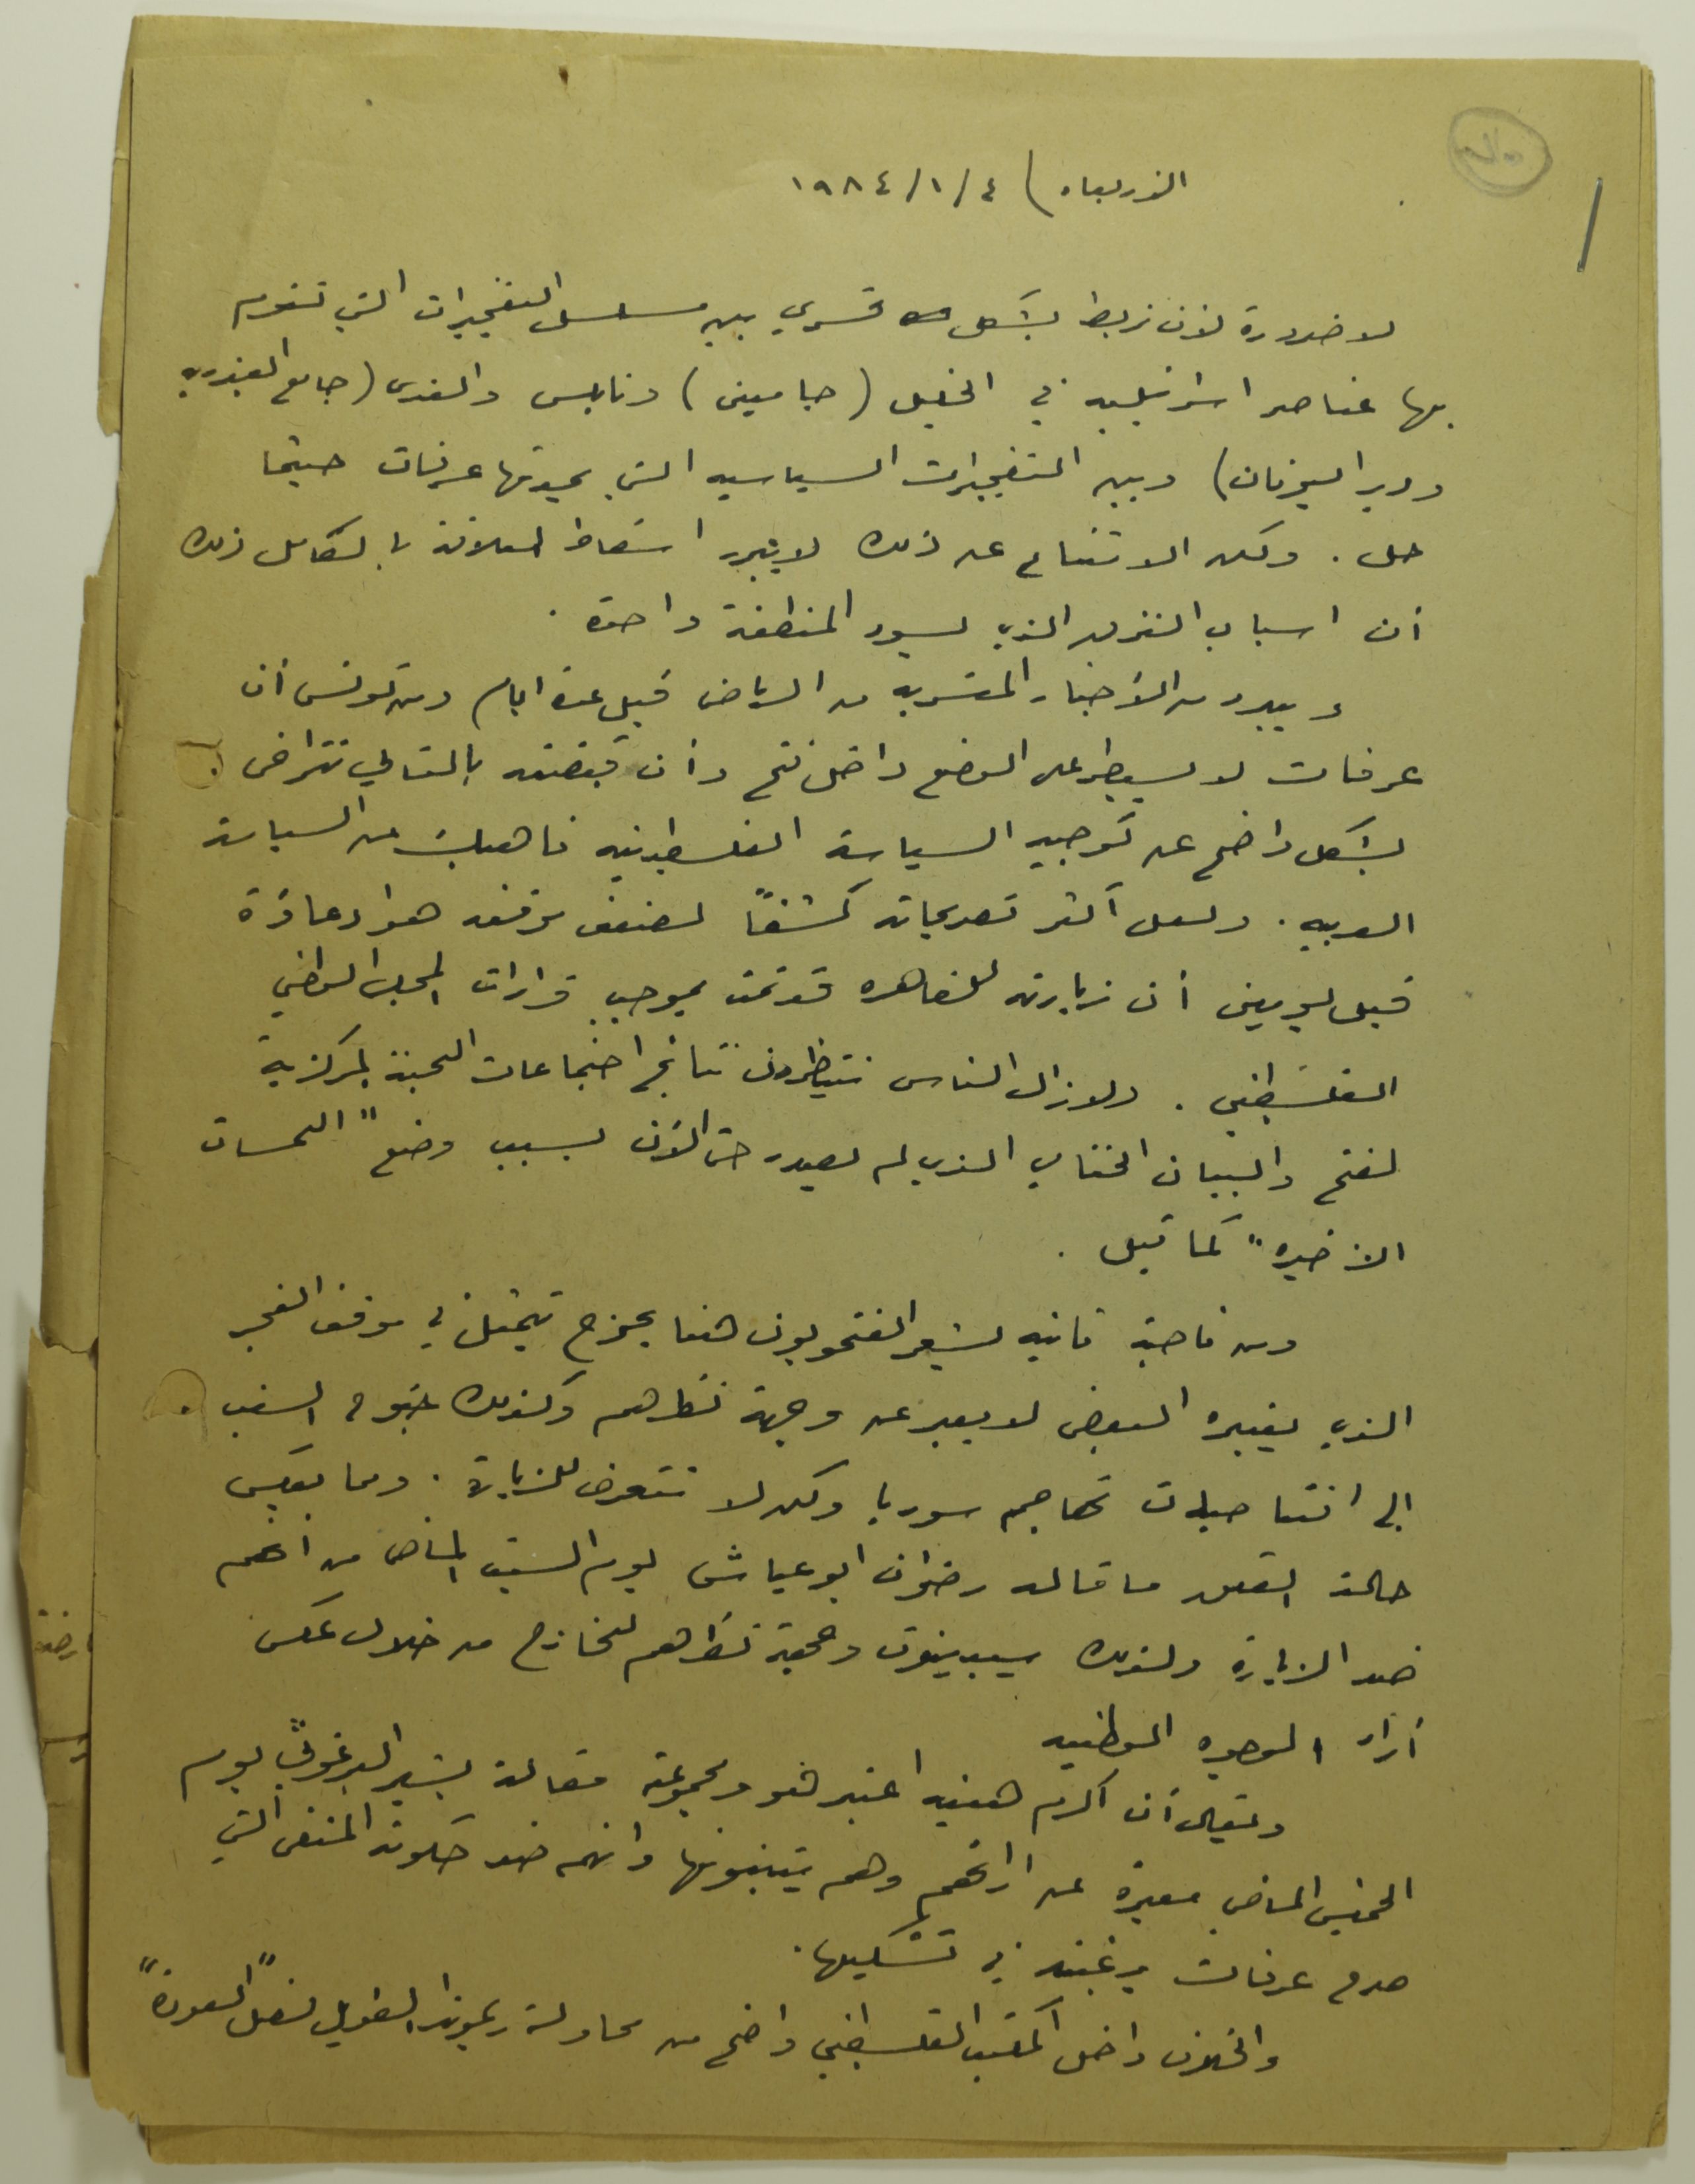 الاربعاء) ٤/١/١٩٨٤
لا ضرورة لأن نربط بشكل قسري بين مسلسل التفجيرات التي تقوم
بها عناصر اسرائيليه في الخليل (جامعين) ونابلس والقدس (جامع العيزريه
ودير اليونان) وبين التفجيرات السياسيه التي يحدثها عرفات حيثما
حل. ولكن الامتناع عن ذلك لا يبرر اسقاط العلاقة بالكامل ذلك
أن اسباب التدهور الذي يسود المنطقة واحدة.
ويبدو من الأخبار المتسربه من الرياض قبل عدة ايام ومن تونس أن
عرفات لا يسيطر على الوضع داخل فتح وأن قبضته بالتالي تتراخى
بشكل واضح عن توجيه السياسة الفلسطينيه ناهيك عن السياسة
العربيه. ولعل أكثر تصريحاته كشفاً لضعف موقفه هو ادعاؤه
قبل يومين أن زيارته للقاهره قد تمت بموجب قرارات المجلس الوطني
الفلسطيني. ولا زال الناس ينتظرون نتائج اجتماعات اللجنة المركزية
لفتح والبيان الختامي الذي لم يصدر حتى الآن بسبب وضع "اللمسات
الأخيره" كما قيل.
ومن ناحية ثانيه يشعر الفتحويون هنا بحرج يتمثل في موقف الفجر
الذي يعتبره البعض لا يعبر عن وجهة نظرهم وكذلك جنوح الشعب
الى افتتاحيات تهاجم سوريا ولكن لا تتعرض للزيارة. ومما يعكس
حالة القلق ما قاله رضوان ابو عياش يوم السبت الماضي من أنهم
ضد الزيارة ولذلك سيبدون وجهة نظرهم للخارج من خلال عكس
آراء الوجوه الوطنيه
ويقال أن أكرم هنيه اعتبر هو ومجموعته مقالة بشير البرغوثي يوم
الخميس الماضي معبرة عن ارائهم وهم يتبنونها وانهم ضد حكومة المنفى التي
صرح عرفات برغبته في تشكيلها.
والخلاف داخل المكتب الفلسطيني واضح من محاولة ريموندا الطويل فصل "العودة"